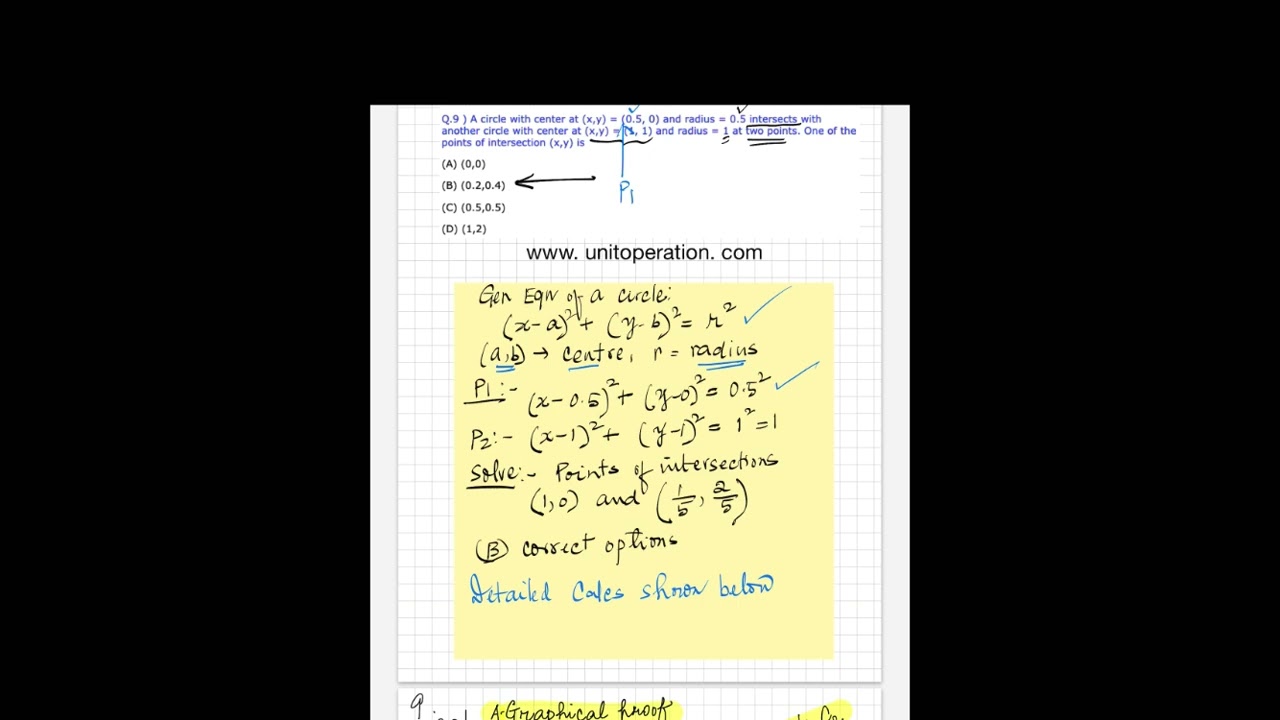 Q.9 ) A circle with center at (x,y) = (0.5, 0) and radius = 0.5 intersects with
another circle with center at (x,y) = (1, 1) and radius = 1 at two points. One of the
points of intersection (x,y) is
(A) (0,0)
(B) (0.2,0.4)
P1
(C) (0.5,0.5)
(D) (1,2)
www. unitoperation. com
Gen Eqn of a circle:
(x-a)²+ (y-b)²= r²
(a,b) → centre, r = radius
P1:- (x-0.5)²+ (y-0)²= 0.5²
P2:- (x-1)²+ (y-1)²= 1²=1
Solve:- Points of intersections
(1,0) and (1/5, 2/5)
(B) correct options
Detailed Calcs shown below
A-Graphical proof